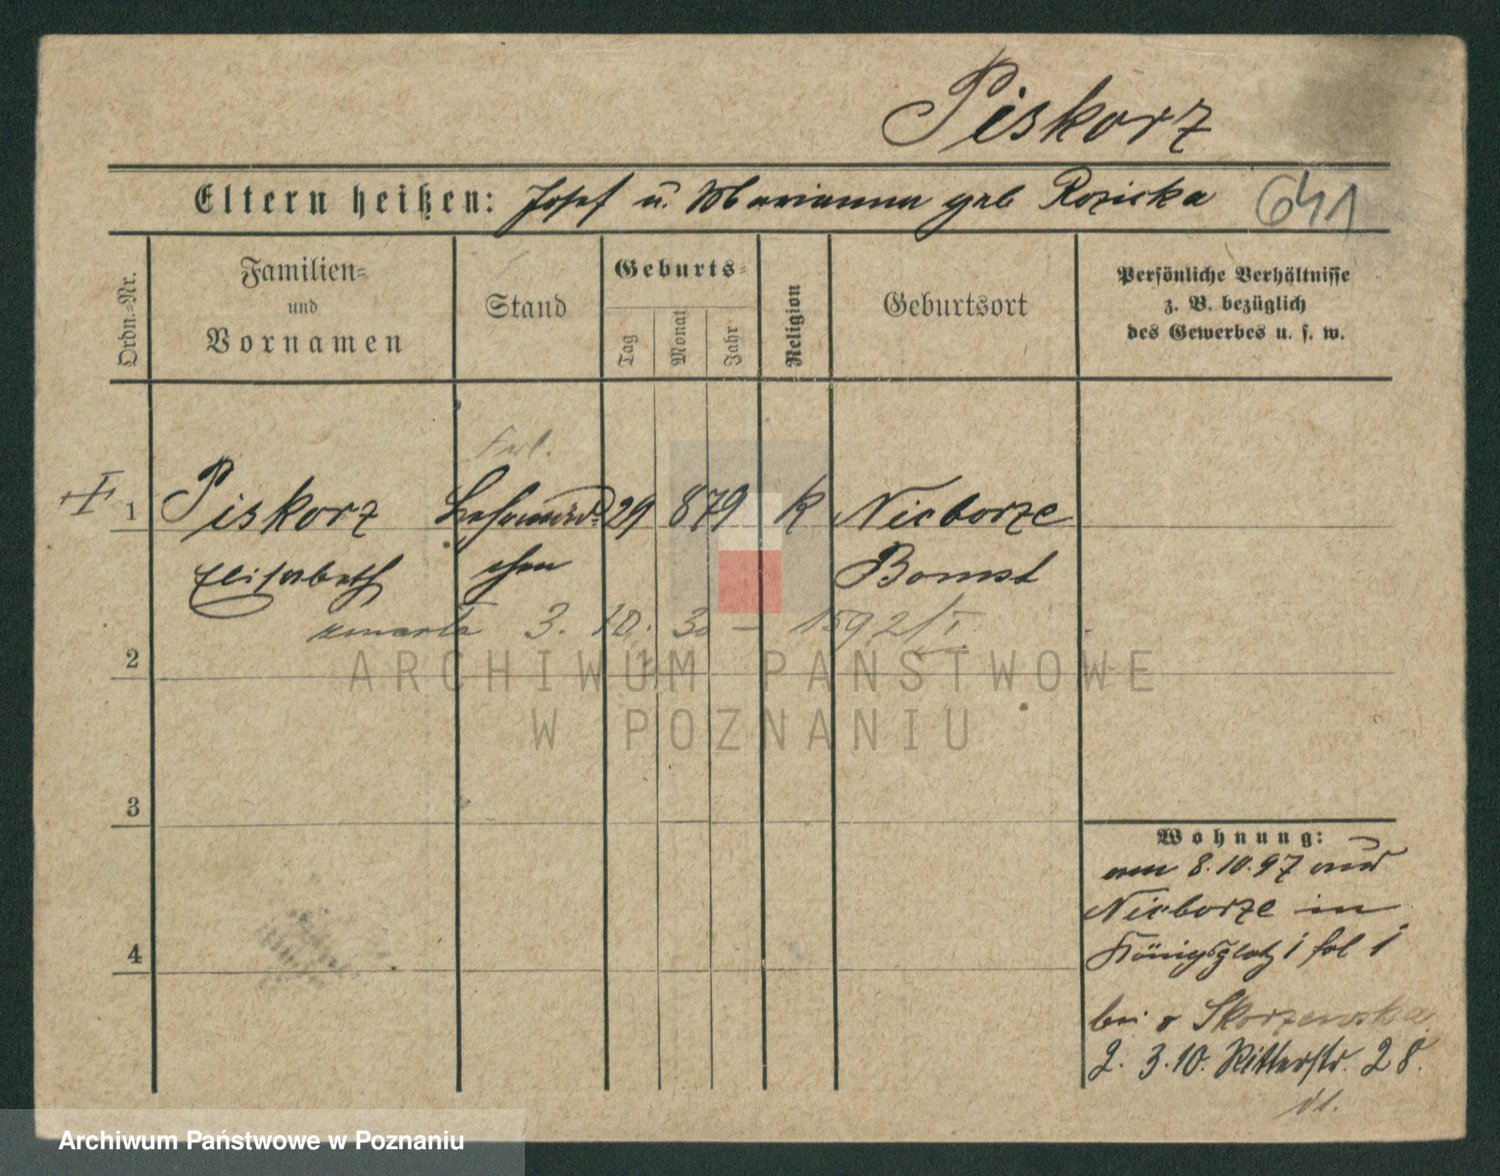 Piskorz
Eltern heißen: Josef u. Marianna geb Rozicka 641
Ordn.=Nr.
Familien=
und
Vornamen
Stand
Geburts=
Tag
Monat
Jahr
Religion
Geburtsort
Persönliche Verhältnisse
z. B. bezüglich
des Gewerbes u. s. w.
Frl.
1 Piskorz 29 8 79 k Nieborze
Elisabeth chen Bomst
zmarła 3. 10. 30 – 1592/I
2
ARCHIWUM PAŃSTWOWE
W POZNANIU
3
Wohnung:
am 8.10.97 aus
Nieborze in
4
Königsplatz 1 fol 1
bei v Skorzewska
2. 3.10. Ritterstr. 28.
Archiwum Państwowe w Poznaniu